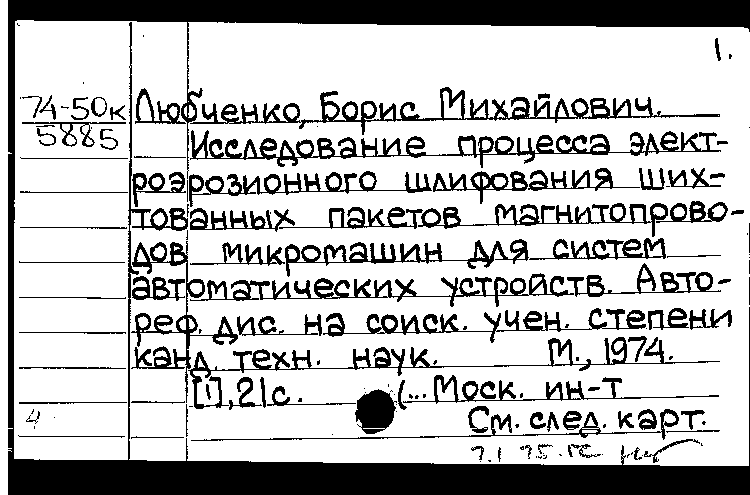 1.
74-50к Любченко, Борис Михайлович.
5885 Исследование процесса элект-
роэрозионного шлифования ших-
тованных пакетов магнитопрово-
дов микромашин для систем
автоматических устройств. Авто-
реф. дис. на соиск. учен. степени
канд. техн. наук. М., 1974.
[1], 21 с. (... Моск. ин-т
4 См. след. карт.